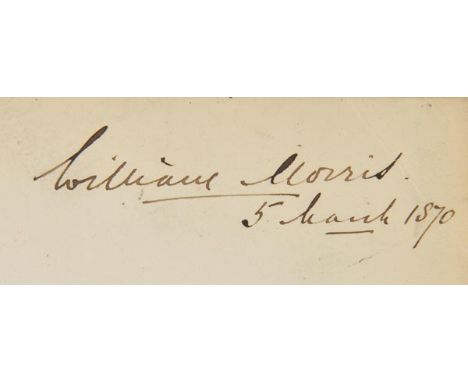 William Morris.
5 March 1870